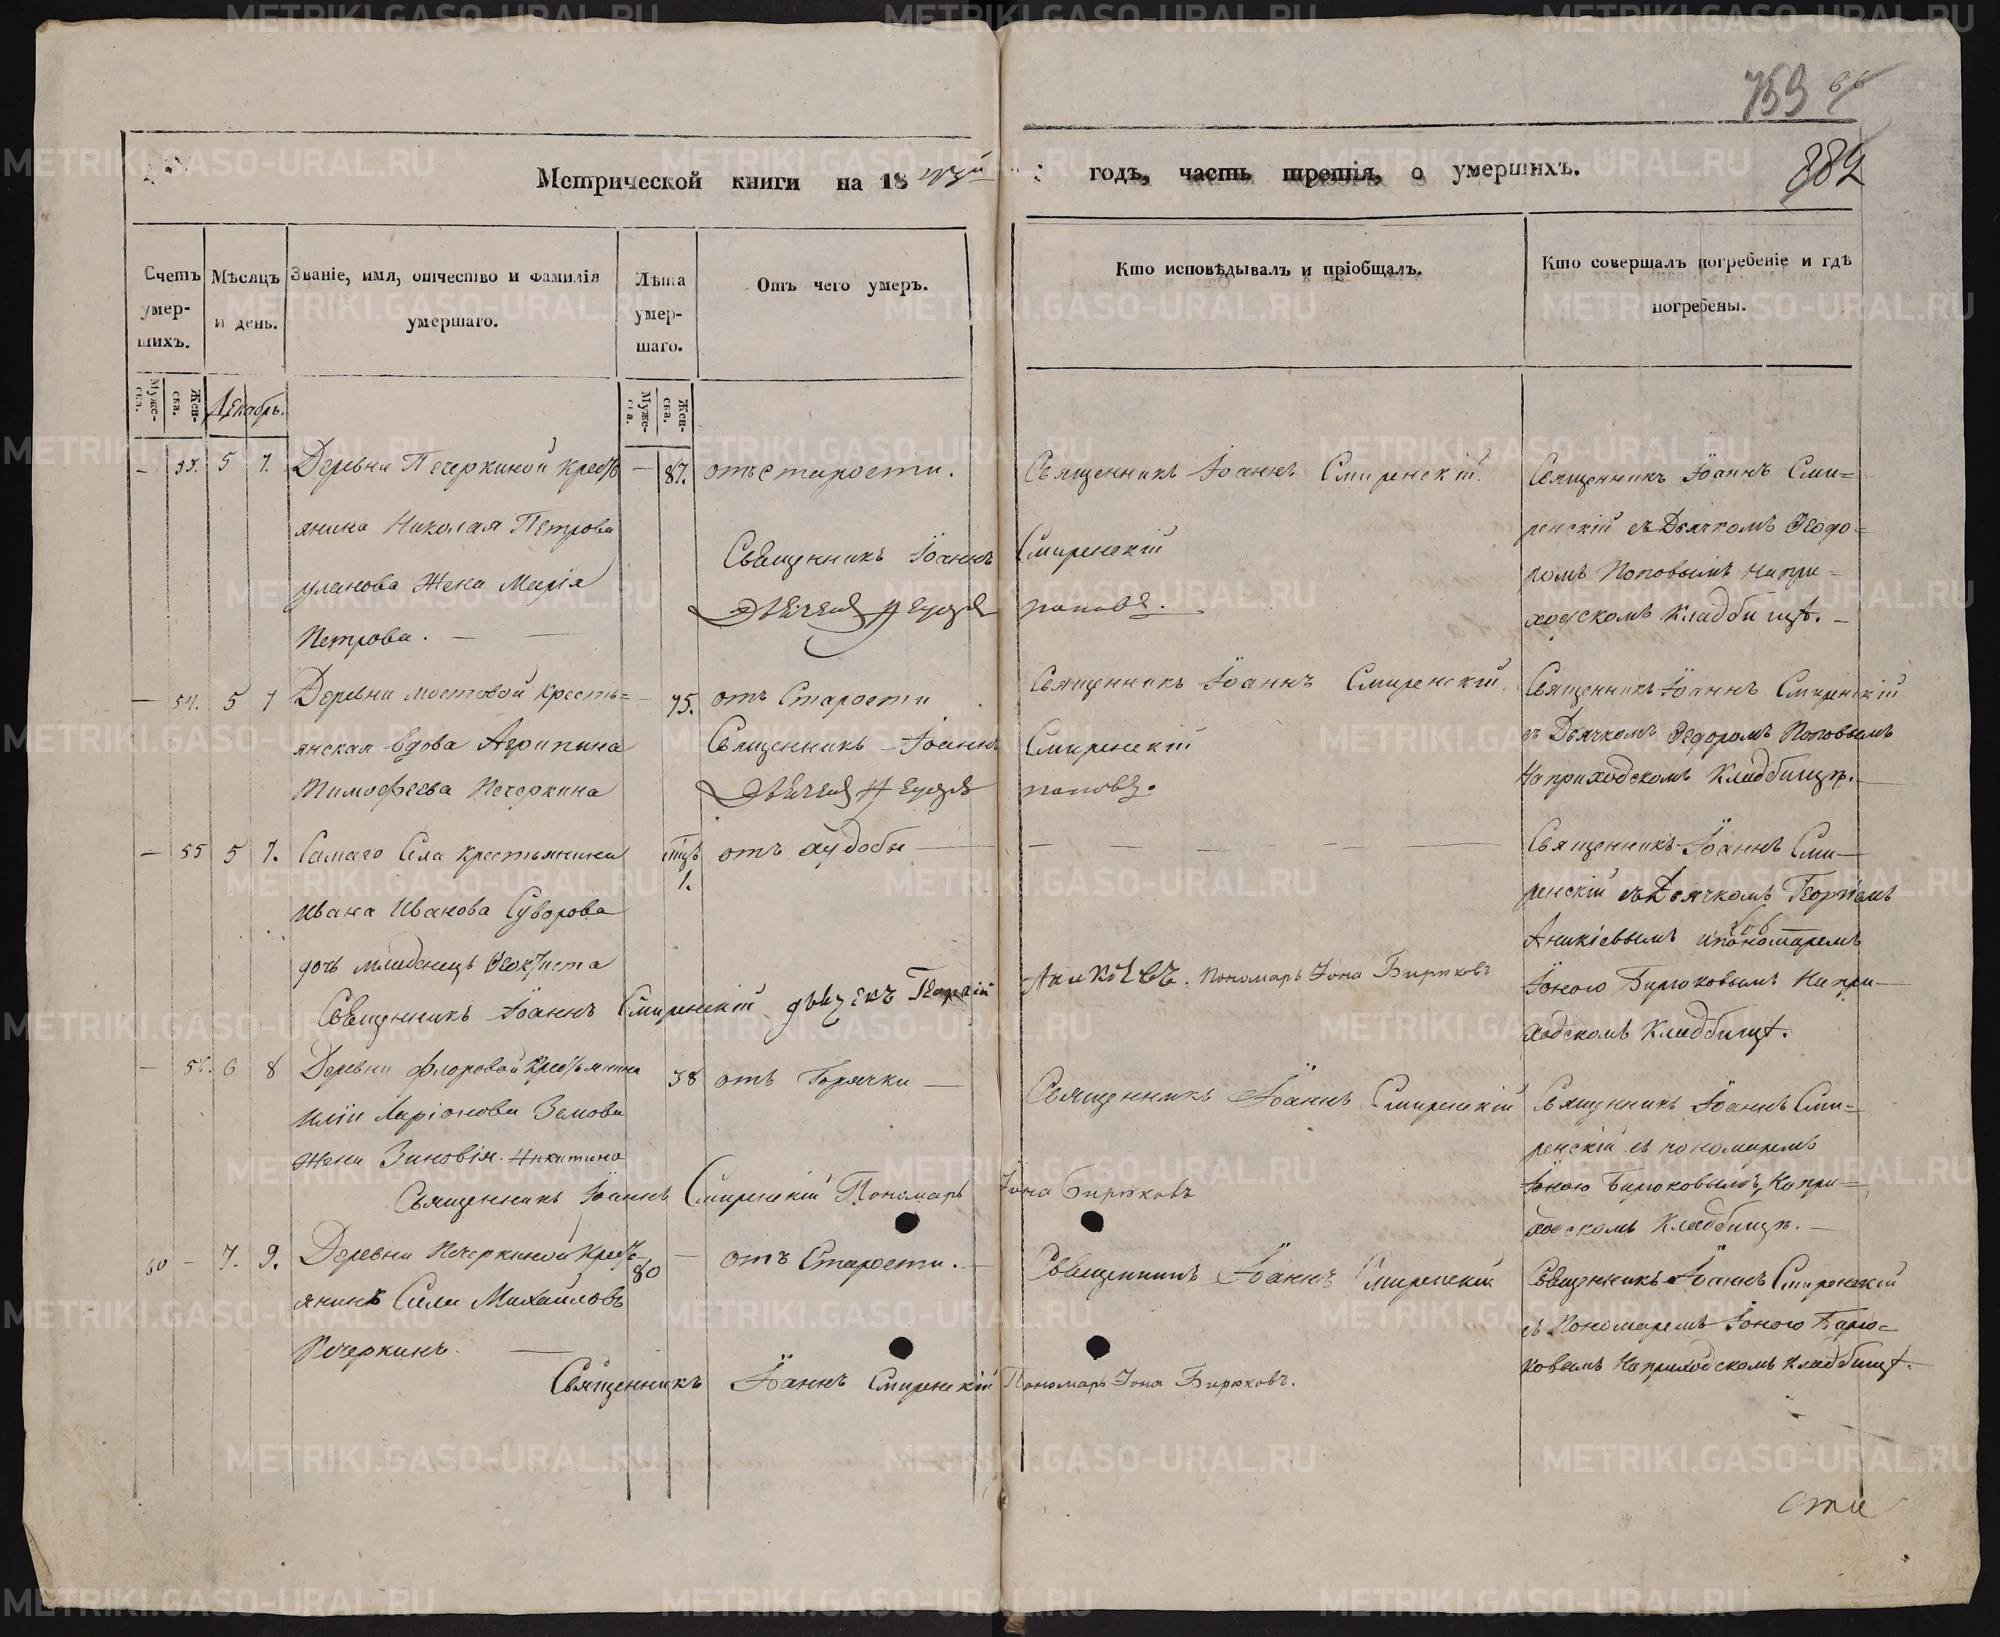 759
882
Метрической книги на 18
годъ, часть третія, о умершихъ.
Счетъ умер-шихъ.
Мѣсяцъ и день.
Званіе, имя, отчество и фамилія умершаго.
Лѣта умер-шаго.
Отъ чего умеръ.
Кто исповѣдывалъ и пріобщалъ.
Кто совершалъ погребеніе и гдѣ погребены.
Муже-ска.
Жен-ска.
Декабрь.
Муже-ска.
Жен-ска.
— 53. 5 7. Деревни Печеркиной кресть — 87. отъ старости. Священникъ Іоаннъ Смиренскій. Священникъ Іоаннъ Сми=
янина Николая Петрова
ренскій съ Дьячкомъ Ѳеодо=
Священникъ Іоаннъ Смиренскій
уланова Жена Марія
ромъ Поповымъ На при=
Поповъ.
Петрова. — —
ходскомъ Кладбищѣ. —
— 54. 5 7 Деревни мостовой кресть= — 75. отъ Старости Священникъ Іоаннъ Смиренскій. Священникъ Іоаннъ Смиренскій
янская вдова Агрипина Священникъ Іоаннъ Смиренскій
съ Дьячкомъ Ѳедоромъ Поповымъ
Тимофеева Печеркина
Поповъ.
На приходскомъ Кладбищѣ. —
— 55 5 7. Самаго Села крестьянина 1. отъ худобы — — — — — Священникъ Іоаннъ Сми—
Ивана Иванова Суворова
ренскій съ Дьячкомъ Георгіемъ
Аникіевымъ и пономаремъ
дочь младенецъ Ѳеоктиста
Іоною Бирюковымъ На при—
Священникъ Іоаннъ Смиренскій дьячекъ Георгій Аникіевъ. Пономарь Іона Бирюковъ
ходскомъ Кладбищѣ.
— 56. 6 8 Деревни Флоровой крестьянина 38 отъ Горячки — Священникъ Іоаннъ Смиренскій Священникъ Іоаннъ Сми=
Иліи Ларіонова Зенова
ренскій съ пономаремъ
Жена Зиновія Никитина
Іоною Бирюковымъ, На при=
Священникъ Іоаннъ Смиренскій Пономарь Іона Бирюковъ
ходскомъ Кладбищѣ. —
60 — 7. 9. Деревни Печеркиной кресть 80 — отъ Старости. — Священникъ Іоаннъ Смиренскій Священникъ Іоаннъ Смиренскій
янинъ Сила Михайловъ
съ Пономаремъ Іоною Бирю=
Печеркинъ. —
ковымъ На приходскомъ кладбищѣ.
Священникъ Іоаннъ Смиренскій Пономарь Іона Бирюковъ.
METRIKI.GASO-URAL.RU